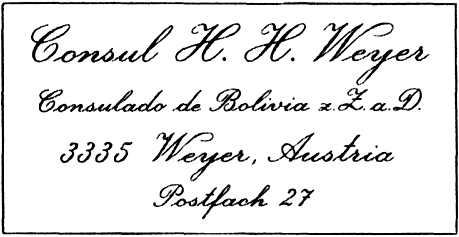 Consul H. H. Weyer
Consulado de Bolivia z.Z.a.D.
3335 Weyer, Austria
Postfach 27